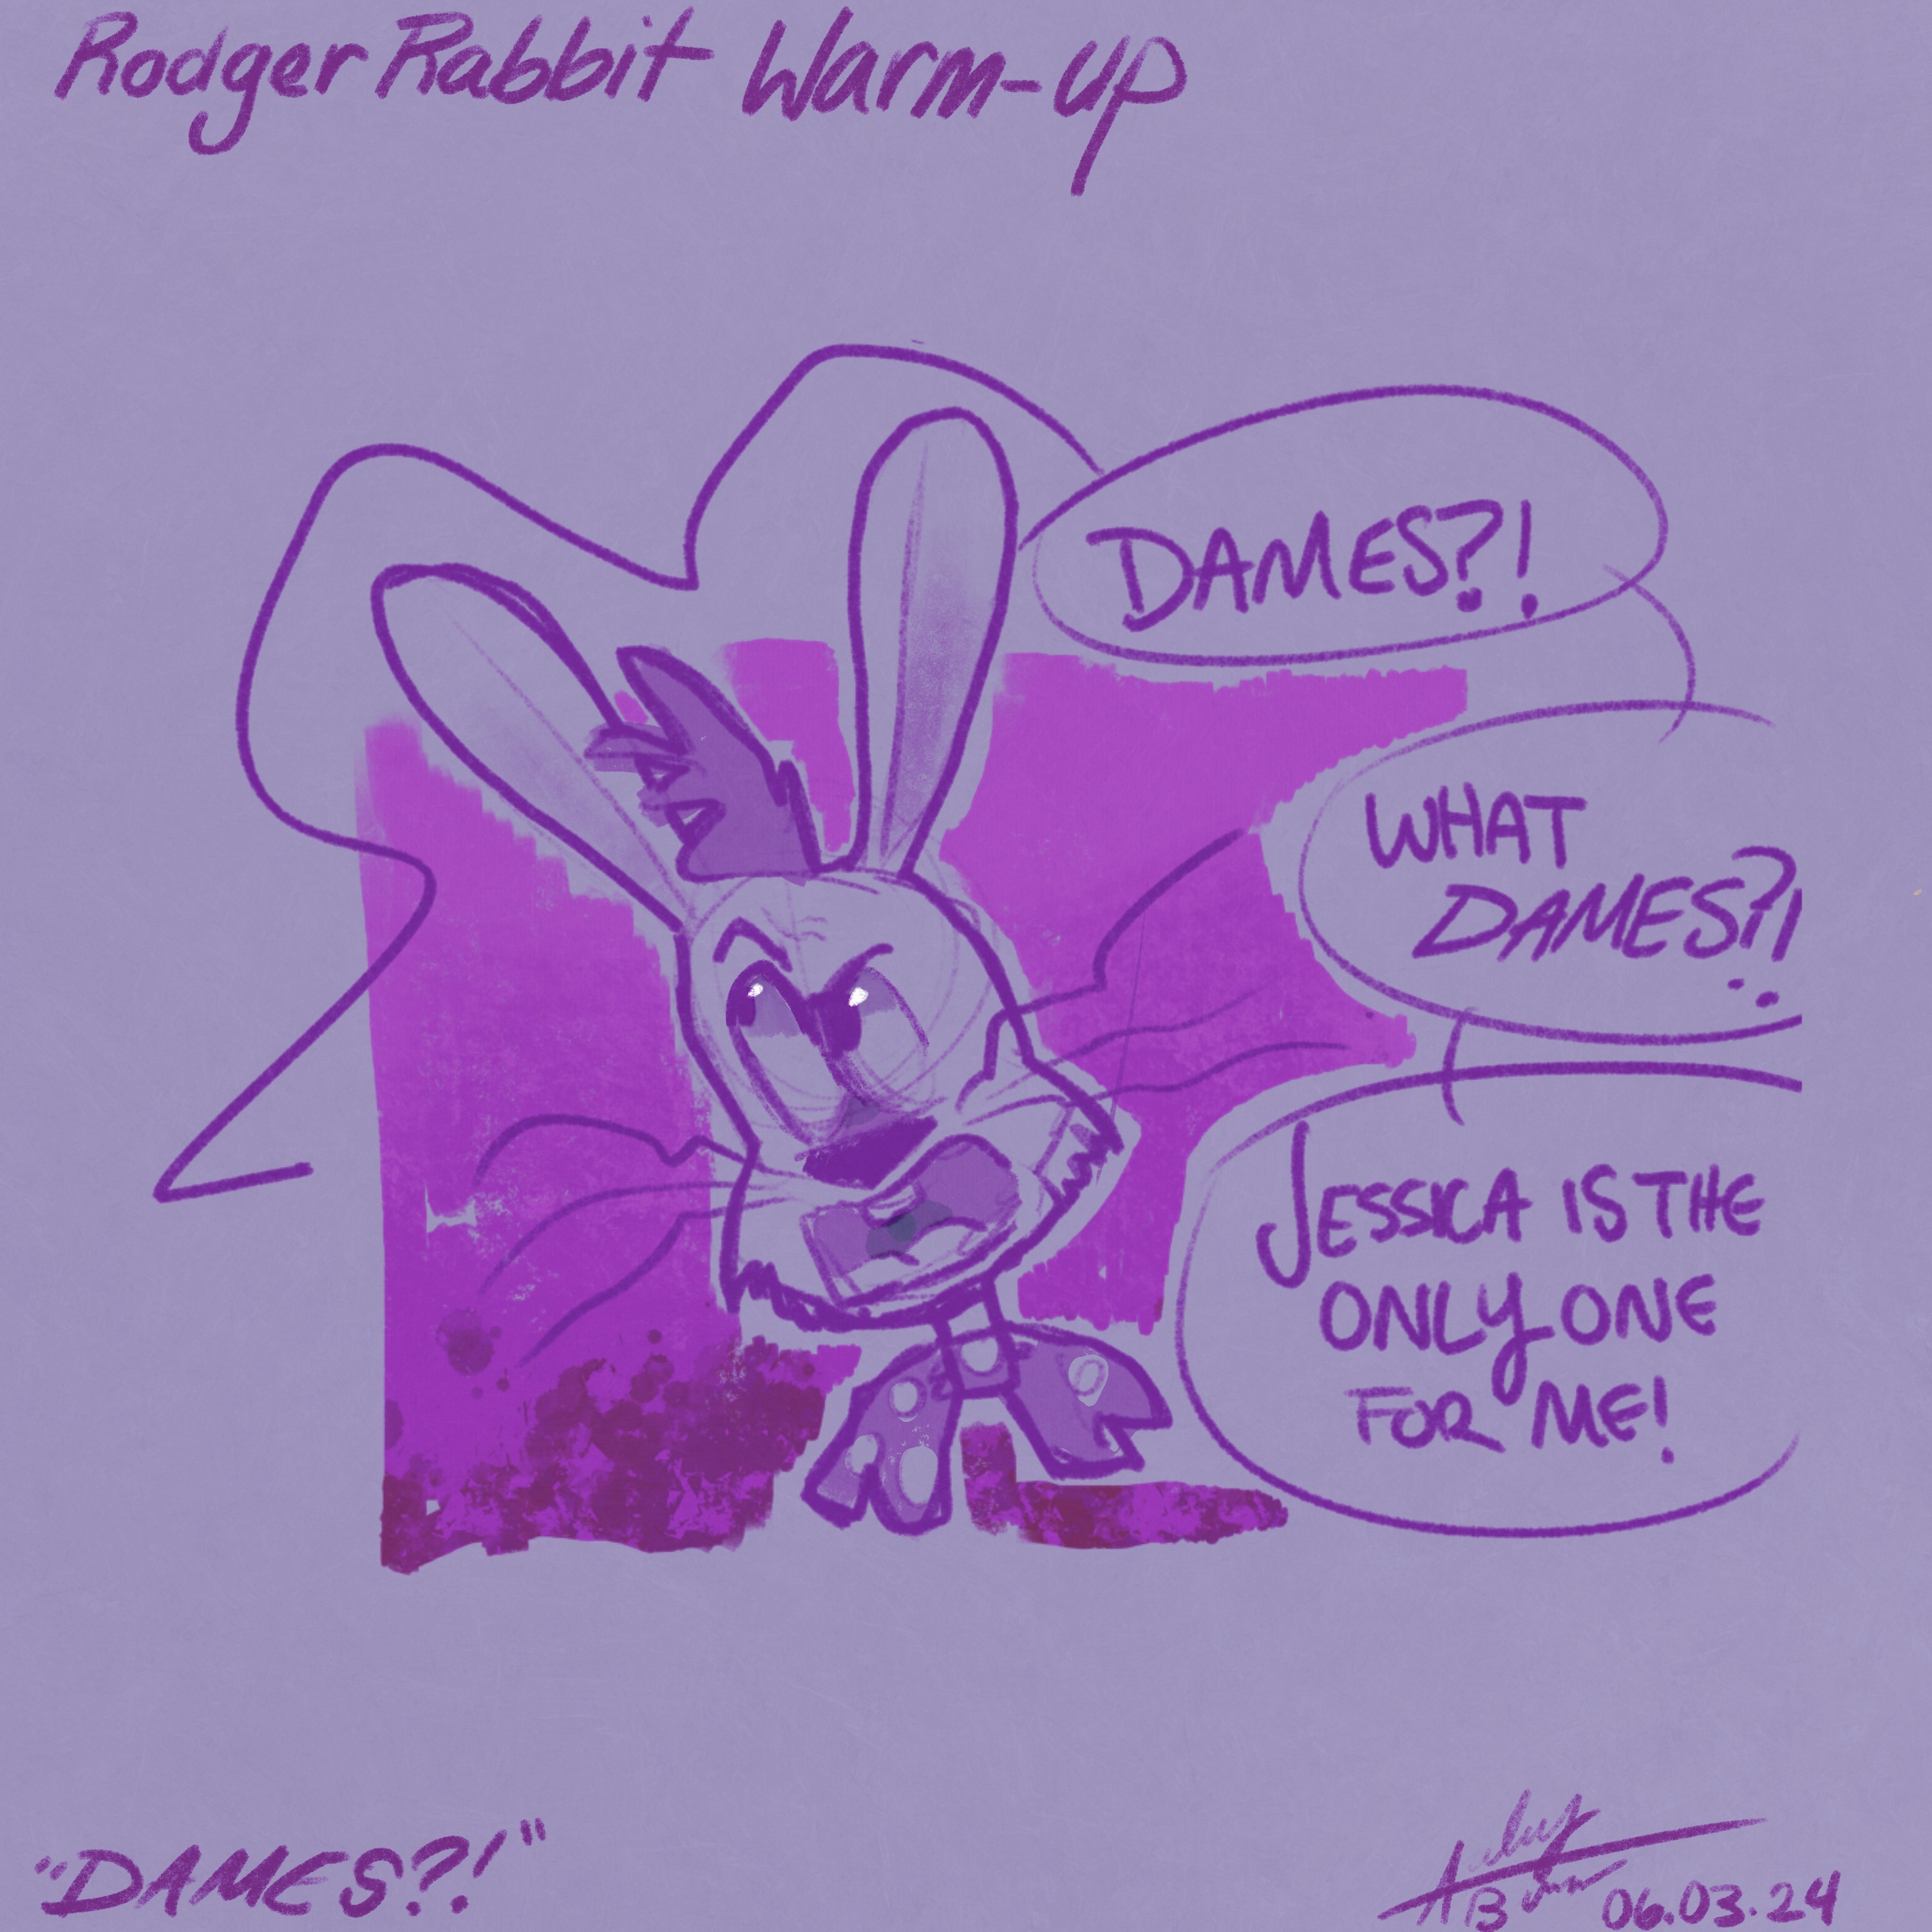 Rodger Rabbit Warm-up
DAMES?!
WHAT
DAMES?!
JESSICA IS THE
ONLY ONE
FOR ME!
"DAMES?!"
06.03.24